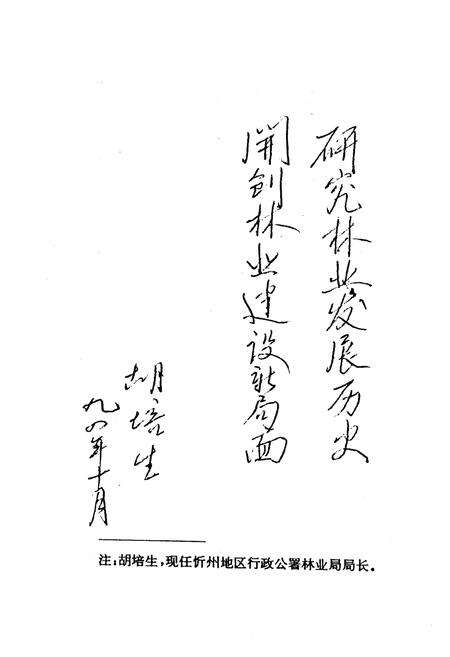 研究林业发展历史
開创林业建设新局面
胡培生
九八年十月
注：胡培生，现任忻州地区行政公署林业局局长。